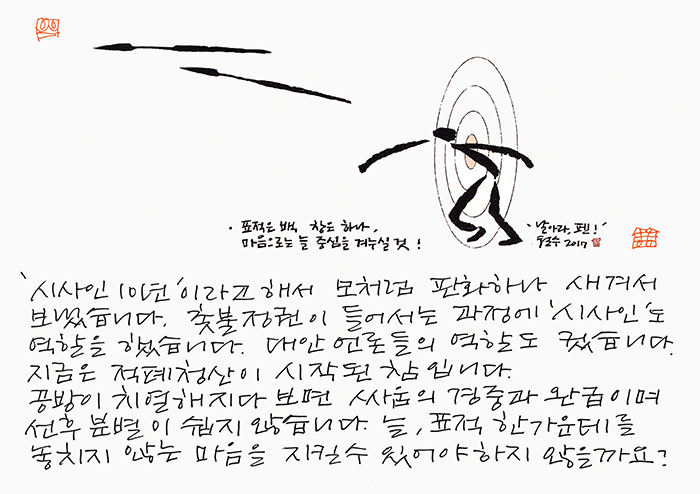 · 표적은 백 창은 하나,
마음으로는 늘 중심을 겨누실 것!
'날아라, 펜!'
철수 2017
'시사인 10년'이라고 해서 모처럼 판화하나 새겨서
보냈습니다. 촛불정권이 들어서는 과정에 '시사인'도
역할을 했습니다. 대안언론들의 역할도 컸습니다.
지금은 적폐청산이 시작된 참입니다.
공방이 치열해지다 보면 싸움의 경중과 완급이며
선후 분별이 쉽지 않습니다. 늘, 표적 한가운데를
놓치지 않는 마음을 지킬수 있어야하지 않을까요?